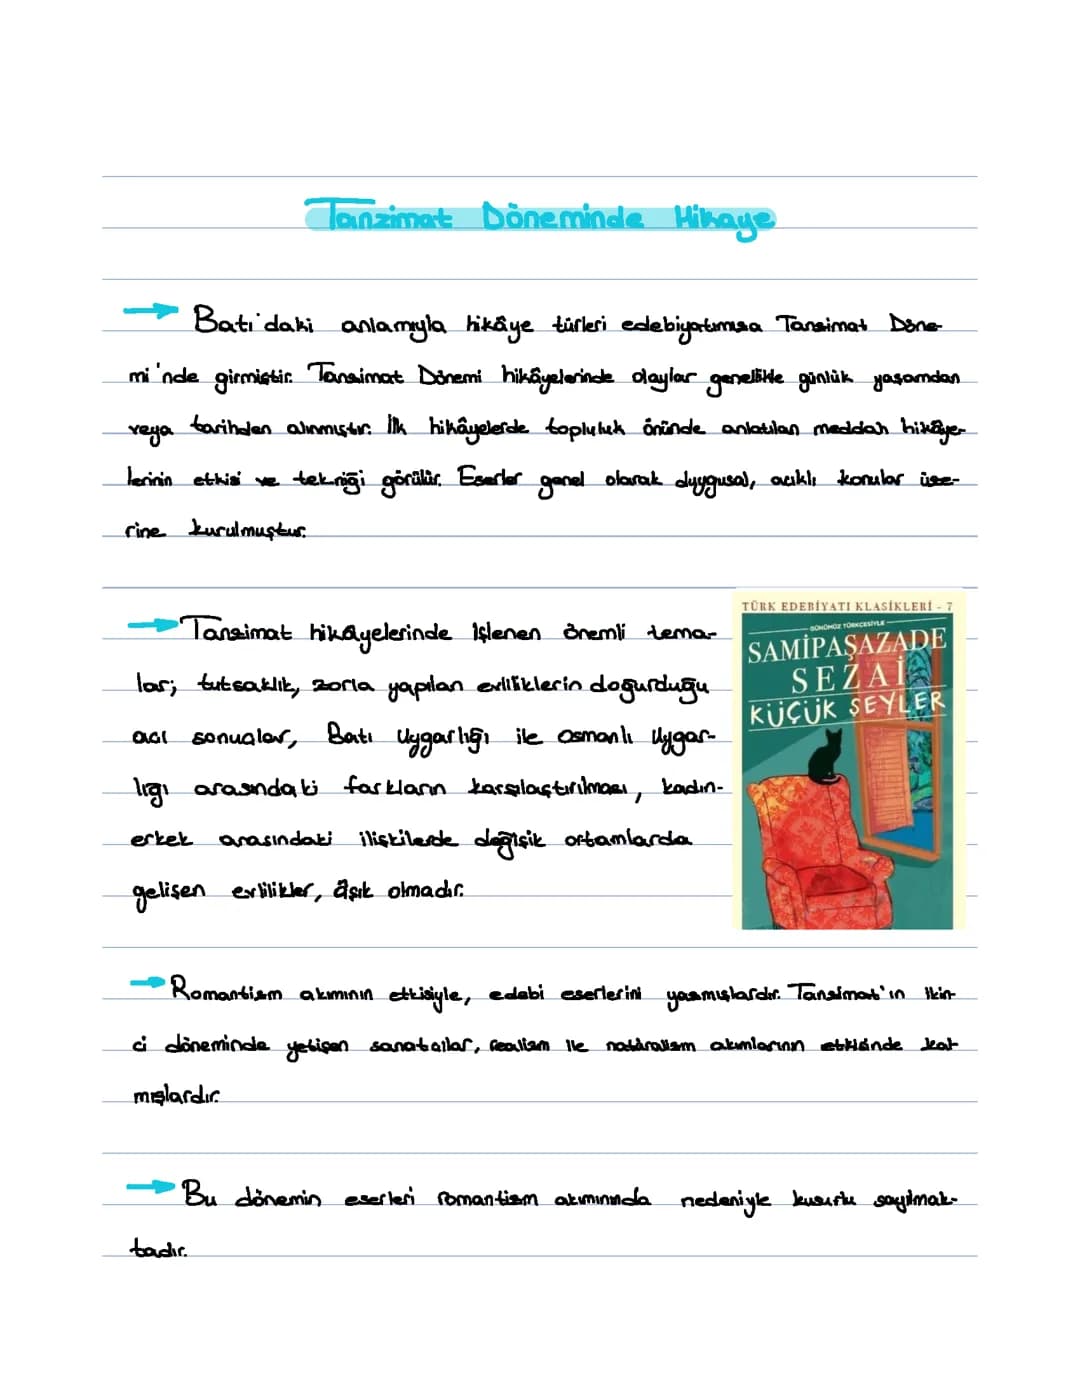 Tanzimat Döneminde Hikaye
→ Batı'daki anlamıyla hikâye türleri edebiyatımıza Tanzimat Döne-
mi'nde girmiştir. Tanzimat Dönemi hikâyelerinde olaylar genellikle günlük yaşamdan
veya tarihden alınmıştır. İlk hikâyelerde topluluk önünde anlatılan meddah hikâye-
lerinin etkisi ve tekniği görülür. Eserler genel olarak duygusal, acıklı konular üze-
rine kurulmuştur.
→ Tanzimat hikâyelerinde işlenen önemli tema-
lar; tutsaklık, zorla yapılan evliliklerin doğurduğu
acı sonuçlar, Batı Uygarlığı ile Osmanlı Uygar-
lığı arasındaki farkların karşılaştırılması, kadın-
erkek arasındaki ilişkilerde değişik ortamlarda
gelişen evlilikler, âşık olmadır.
TÜRK EDEBİYATI KLASİKLERİ - 7
GÜNÜMÜZ TÜRKÇESİYLE
SAMİPAŞAZADE
SEZAİ
KÜÇÜK ŞEYLER
→ Romantizm akımının etkisiyle, edebi eserlerini yazmışlardır. Tanzimat'ın ikin-
ci döneminde yetişen sanatçılar, realizm ile natüralizm akımlarının etkisinde kal
mışlardır.
→ Bu dönemin eserleri romantizm akımınında nedeniyle kusurlu sayılmak-
tadır.